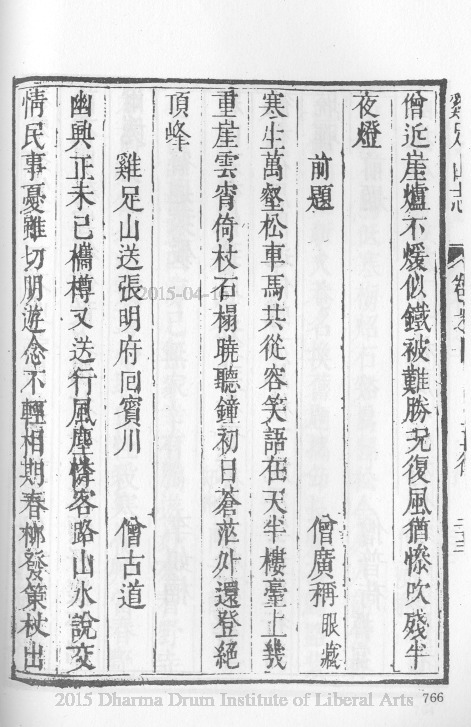 僧近崖爐不煖似鐵被難勝況復風猶慘吹殘半
夜燈
前題 僧廣稱眼藏
寒生萬壑松車馬共從容笑語在天半樓臺上幾
重崖雲宵倚杖石榻曉聽鐘初日蒼茫外還登絕
頂峰
雞足山送張明府囘賓川 僧古道
幽興正未已攜樽又送行風塵憐客路山水說交
情民事憂難切朋遊念不輕相期春柳發策杖出
雞足山志
二十三
2015-04-1
2015 Dharma Drum Institute of Liberal Arts
766